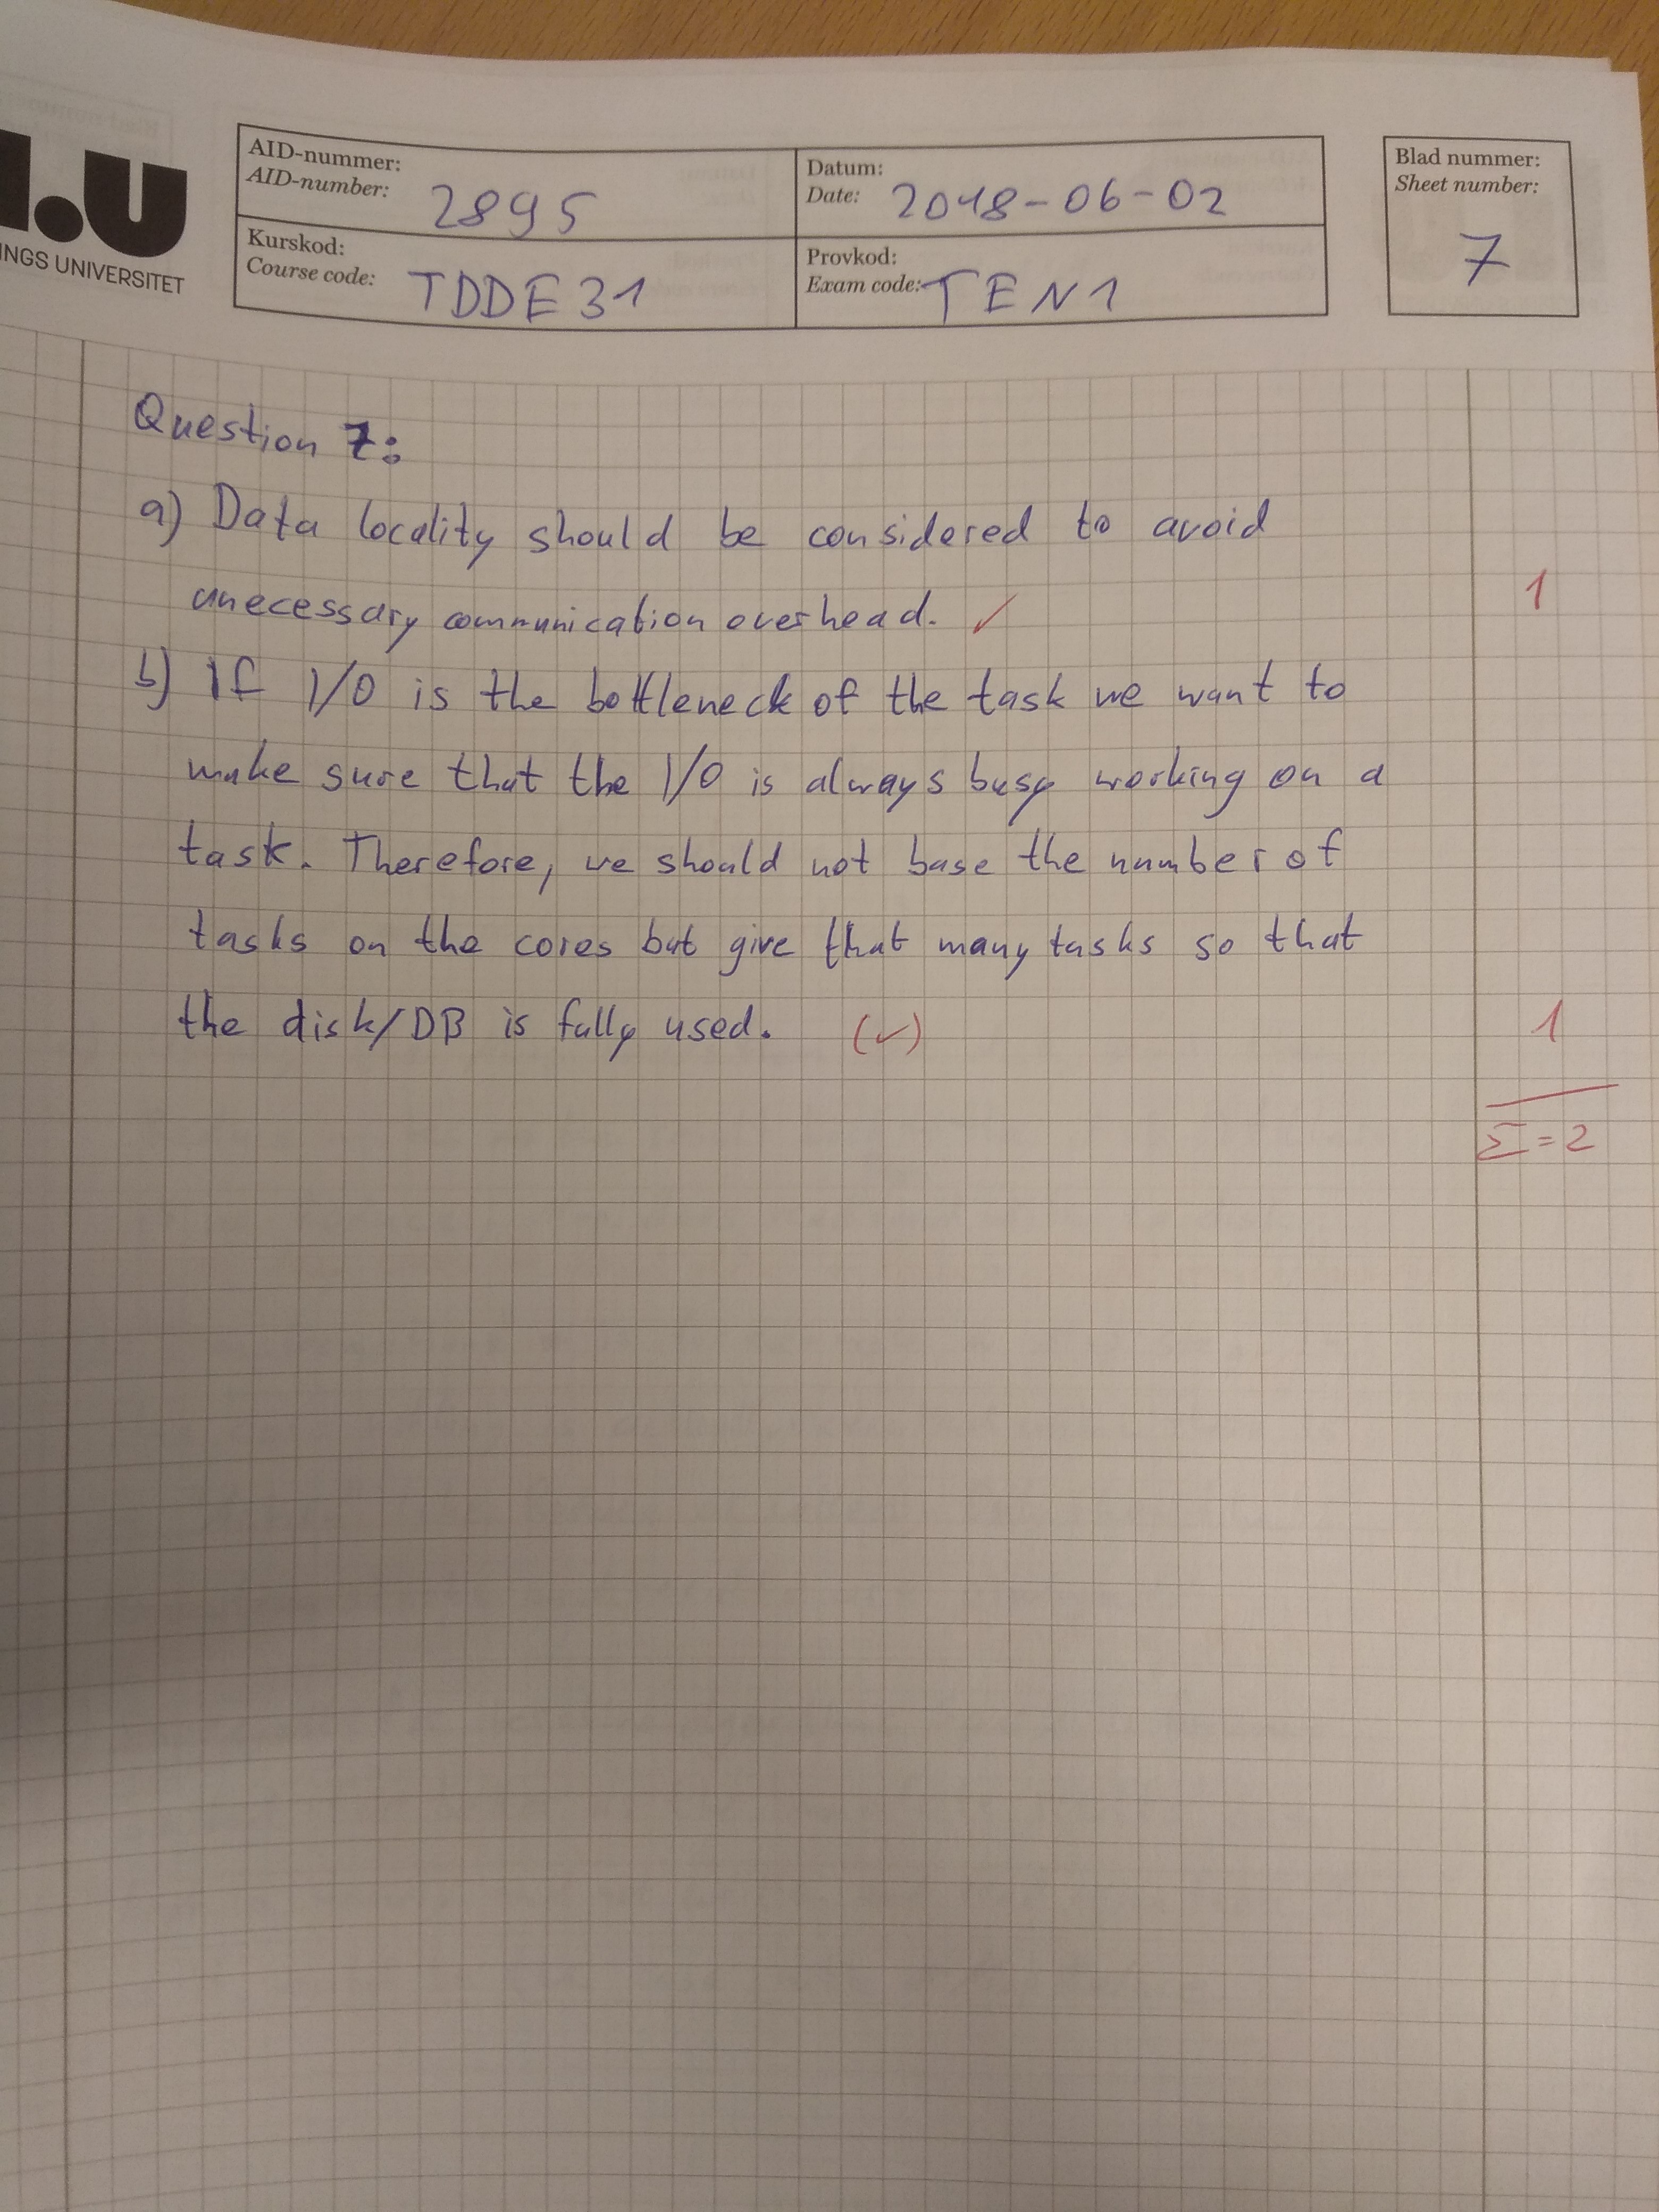 I.U
INGS UNIVERSITET
AID-nummer:
AID-number: 2895
Datum:
Date: 2018-06-02
Blad nummer:
Sheet number:
7
Kurskod:
Course code: TDDE31
Provkod:
Exam code: TEN1
Question 7:
a) Data locality should be considered to avoid
unecessary communication overhead. ✓
1
b) If I/O is the bottleneck of the task we want to
make sure that the I/O is always busy working on a
task. Therefore, we should not base the number of
tasks on the cores but give that many tasks so that
the disk/DB is fully used. (✓)
1
Σ=2